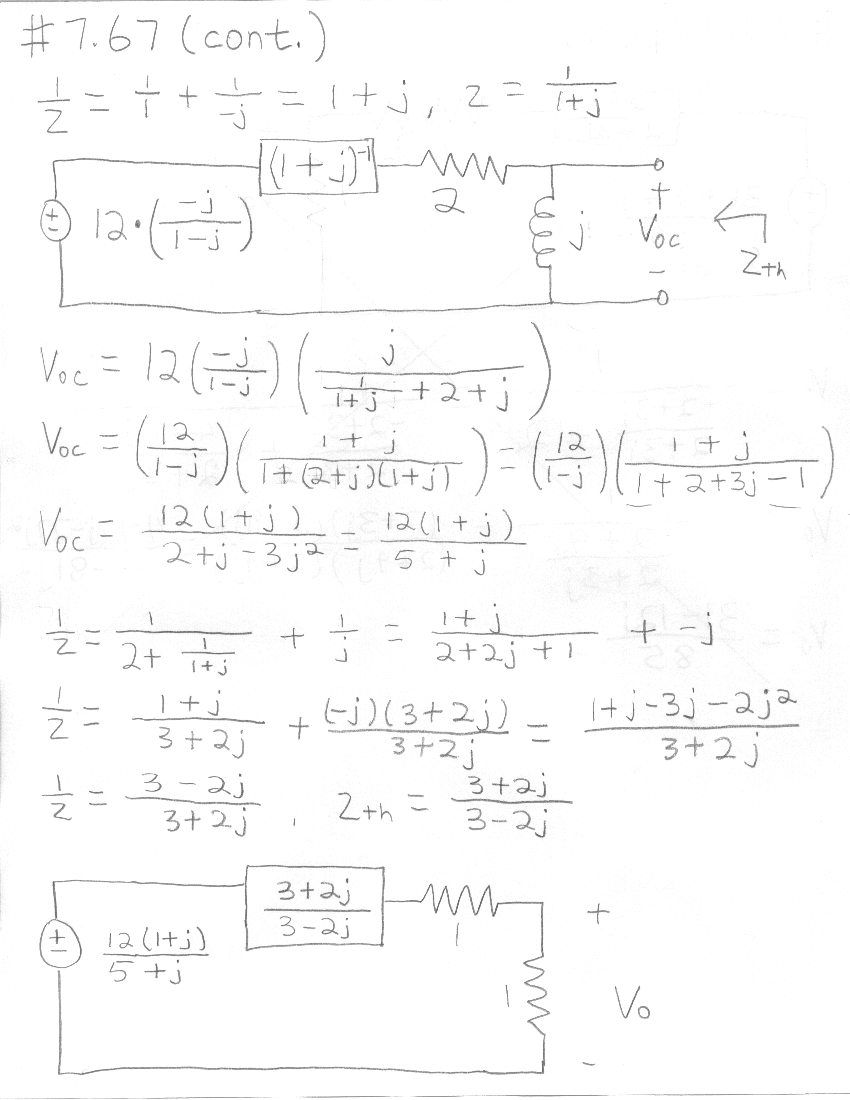 #7.67 (cont.)
1/z = 1/1 + 1/-j = 1 + j, z = 1/(1+j)
(1 + j)^-1
2
± 12·(-j/(1-j))
j
+
Voc
-
Zth
Voc = 12(-j/(1-j)) (j/(1/(1+j) + 2 + j))
Voc = (12/(1-j)) ((1 + j)/(1 + (2+j)(1+j))) = (12/(1-j)) ((1 + j)/(1 + 2 + 3j - 1))
Voc = 12(1+j)/(2+j-3j²) = 12(1+j)/(5 + j)
1/z = 1/(2 + 1/(1+j)) + 1/j = (1+j)/(2+2j+1) + -j
1/z = (1+j)/(3+2j) + (-j)(3+2j)/(3+2j) = (1+j-3j-2j²)/(3+2j)
1/z = (3-2j)/(3+2j), Zth = (3+2j)/(3-2j)
(3+2j)/(3-2j)
1
+
± 12(1+j)/(5+j)
1
Vo
-